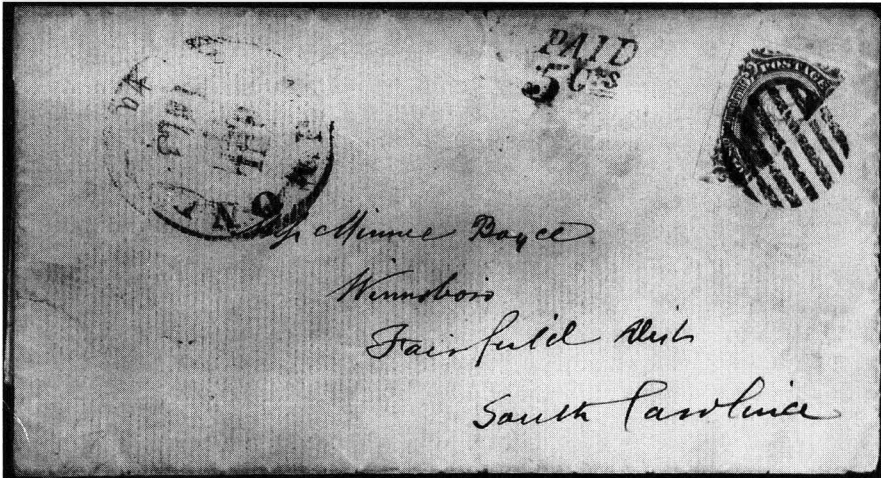 PAID
5 Cts
POSTAGE
Va
Miss Minnie Boyce
Winnsboro
Fairfield Dist
South Carolina